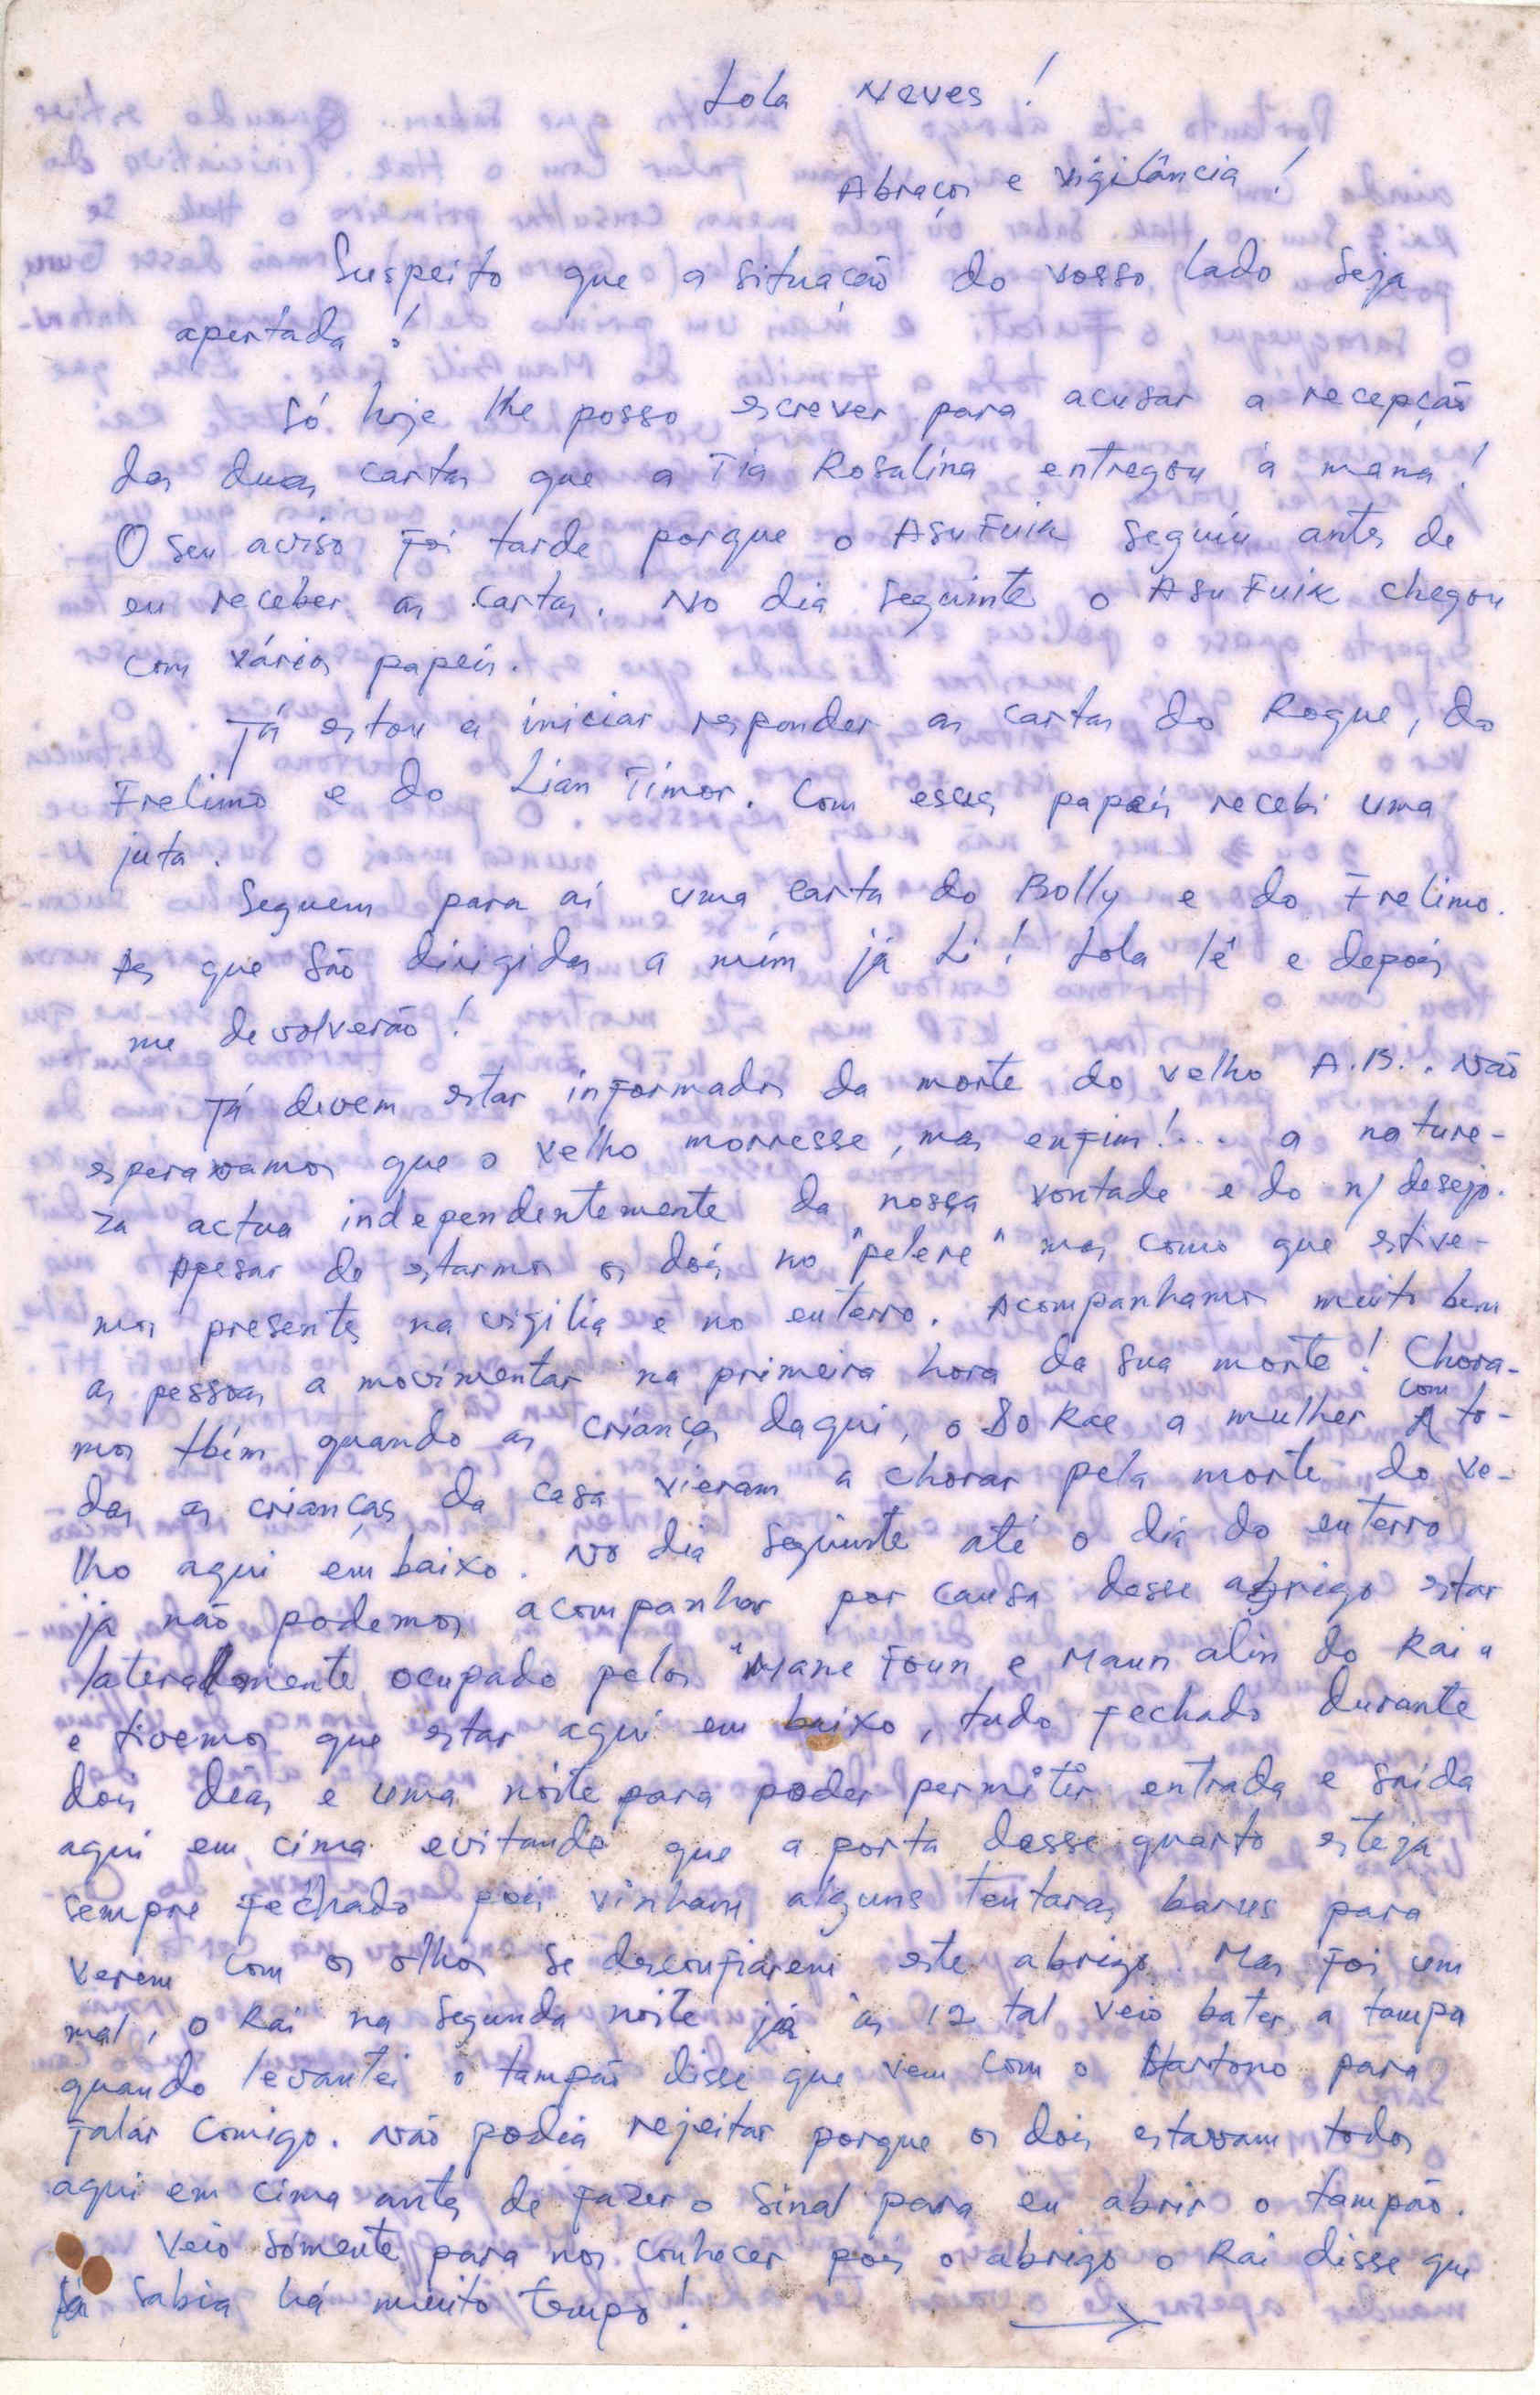 Lola Neves!
Abraços e vigilância!
Suspeito que a situação do vosso lado seja
apertada!
Só hoje lhe posso escrever para acusar a recepção
das duas cartas que a Tia Rosalina entregou à mana!
O seu aviso foi tarde porque o Asu Fuik seguiu antes de
eu receber as cartas. No dia seguinte o Asu Fuik chegou
com vários papéis.
Já estou a iniciar responder as cartas do Roque, do
Frelimo e do Lian Timor. Com esses papéis recebi uma
juta.
Seguem para aí uma carta do Bolly e do Frelimo.
As que são dirigidas a mim já li! Lola lê e depois
me devolverão!
Já devem estar informados da morte do velho A.B.. Não
esperavamos que o velho morresse, mas enfim!... a nature-
za actua independentemente da nossa vontade e do n/ desejo.
Apesar de estarmos os dois no "pelere" mas como que estive-
mos presentes na vigília e no enterro. Acompanhamos muito bem
as pessoas a movimentar na primeira hora da sua morte! Chora-
mos tbém quando as crianças daqui, o So Rae a mulher com to-
das as crianças da casa vieram a chorar pela morte do ve-
lho aqui em baixo. No dia seguinte até o dia do enterro
já não podemos acompanhar por causa desse abrigo estar
lateralmente ocupado pelos "Mane Foun e Maun alin do Rai"
e tivemos que estar aqui em baixo, tudo fechado durante
dois dias e uma noite para poder permitir entrada e saída
aqui em cima evitando que a porta desse quarto esteja
sempre fechado pois vinham alguns tentaras barus para
verem com os olhos se desconfiarem este abrigo. Mas foi um
mal, o Rai na segunda noite já às 12 tal veio bater a tampa
quando levantei o tampão disse que vem com o Hartono para
falar comigo. Não podia rejeitar porque os dois estavam todos
aqui em cima antes de fazer o sinal para eu abrir o tampão.
Veio sómente para nos conhecer pois o abrigo o Rai disse que
já sabia há muito tempo!